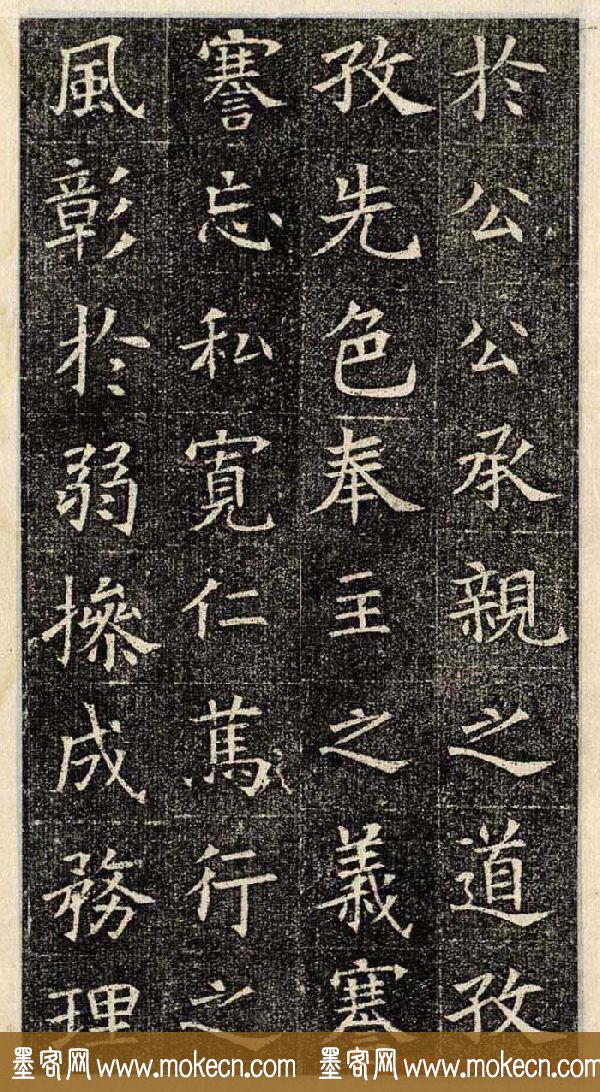 於公公承親之道孜
孜先色奉主之義謇
謇忘私寬仁篤行之
風彰於弱操成務理
墨客网 www.mokecn.com 墨客网 www.mokecn.com